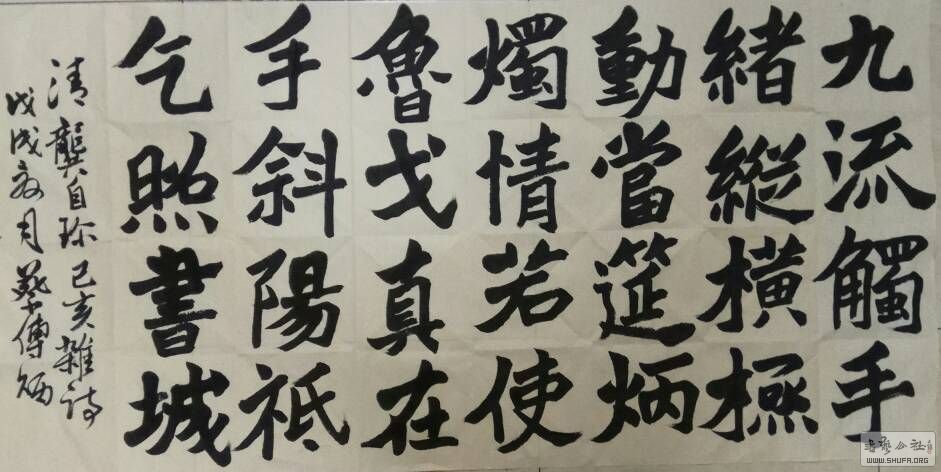 九流觸手
緒縱橫極
動當筵炳
燭情若使
魯戈真在
手斜陽祗
乞照書城
清龔自珍己亥雜詩
戊戌月蔡炳
书艺公社
WWW.SHUFA.ORG